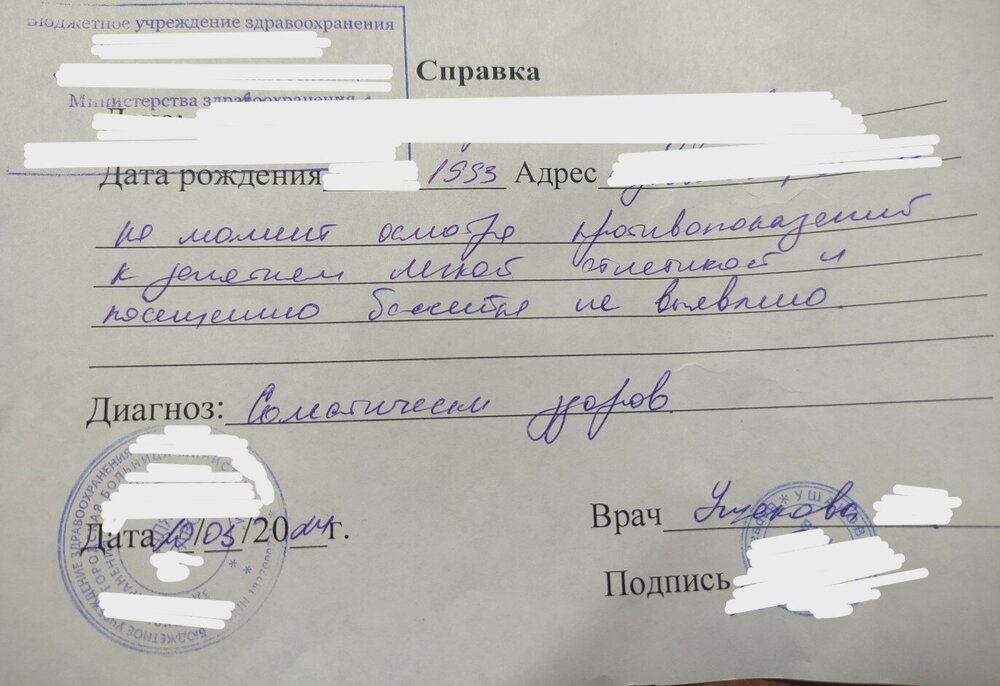 Бюджетное учреждение здравоохранения
Справка
Министерства здравоохранения
Дата рождения 1993 Адрес
на момент осмотра противопоказаний
к занятием легкой атлетикой и
посещению бассейна не выявлено.
Диагноз: Соматически здоров
Врач Ушакова
Дата 10/03/2024г.
Подпись
БЮДЖЕТНОЕ УЧРЕЖДЕНИЕ ЗДРАВООХРАНЕНИЯ
БОЛЬНИЦА
УШАКОВА